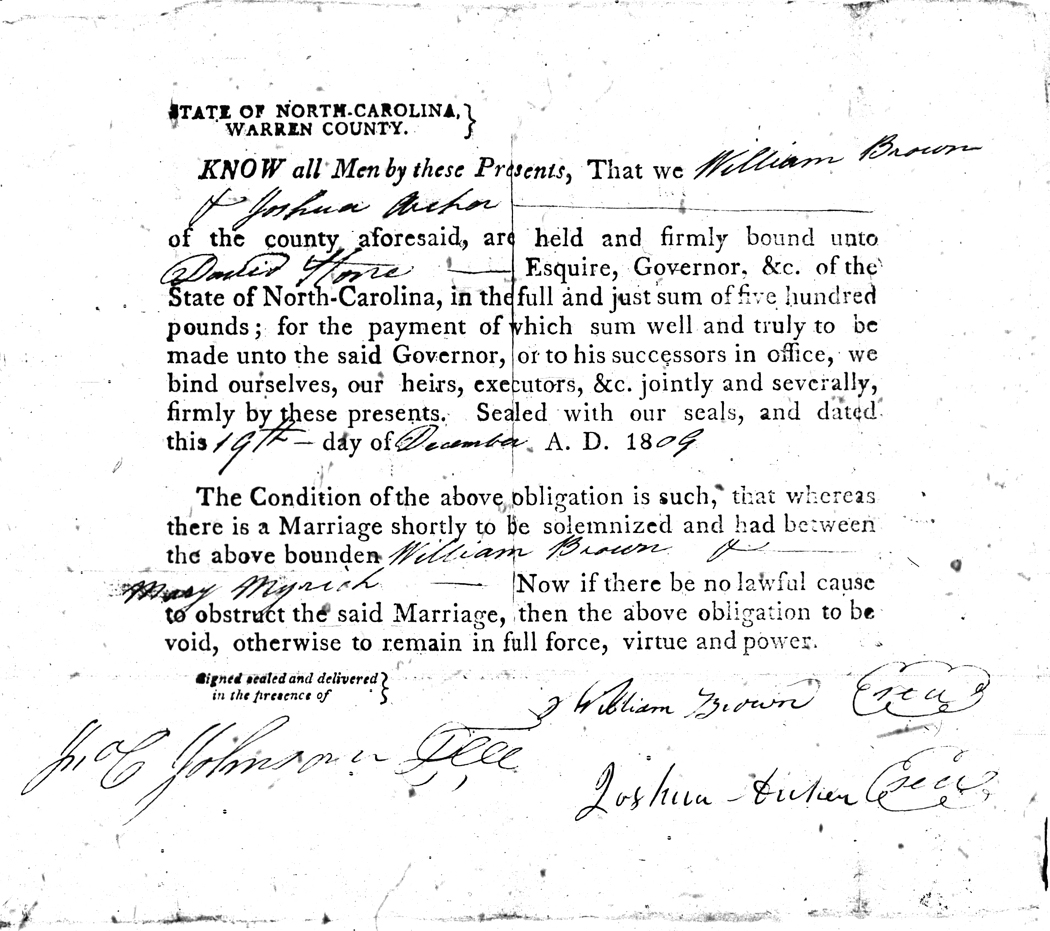 STATE OF NORTH-CAROLINA, }
WARREN COUNTY.
KNOW all Men by these Presents, That we William Brown
& Joshua
of the county aforesaid, are held and firmly bound unto
David Stone — Esquire, Governor, &c. of the
State of North-Carolina, in the full and just sum of five hundred
pounds; for the payment of which sum well and truly to be
made unto the said Governor, or to his successors in office, we
bind ourselves, our heirs, executors, &c. jointly and severally,
firmly by these presents. Sealed with our seals, and dated
this 19th — day of December A. D. 1809
The Condition of the above obligation is such, that whereas
there is a Marriage shortly to be solemnized and had between
the above bounden William Brown &
Mary Myrick — Now if there be no lawful cause
to obstruct the said Marriage, then the above obligation to be
void, otherwise to remain in full force, virtue and power.
Signed sealed and delivered }
in the presence of
William Brown (seal)
Jno C Johnson
Joshua (seal)